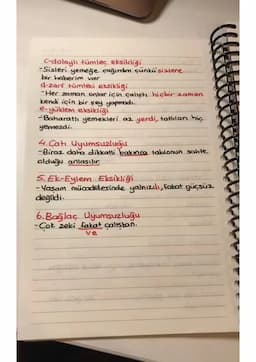 c-dolaylı tümleç eksikliği
-Sizleri yemeğe çağırdım çünkü sizlere
bir haberim var.
d-zarf tümleci eksikliği
-Her zaman onlar için çalıştı hiçbir zaman
kendi için bir şey yapmadı.
e-yüklem eksikliği
-Baharatlı yemekleri az yerdi, tatlıları hiç
yemezdi.
4.Çatı Uyumsuzluğu
-Biraz daha dikkatli bakınca tablonun sahte
olduğu anlaşılır.
5.Ek-Eylem Eksikliği
-Yaşam mücadelesinde yalnızdı, fakat güçsüz
değildi.
6.Bağlaç Uyumsuzluğu
-Çok zeki fakat çalışkan.
ve